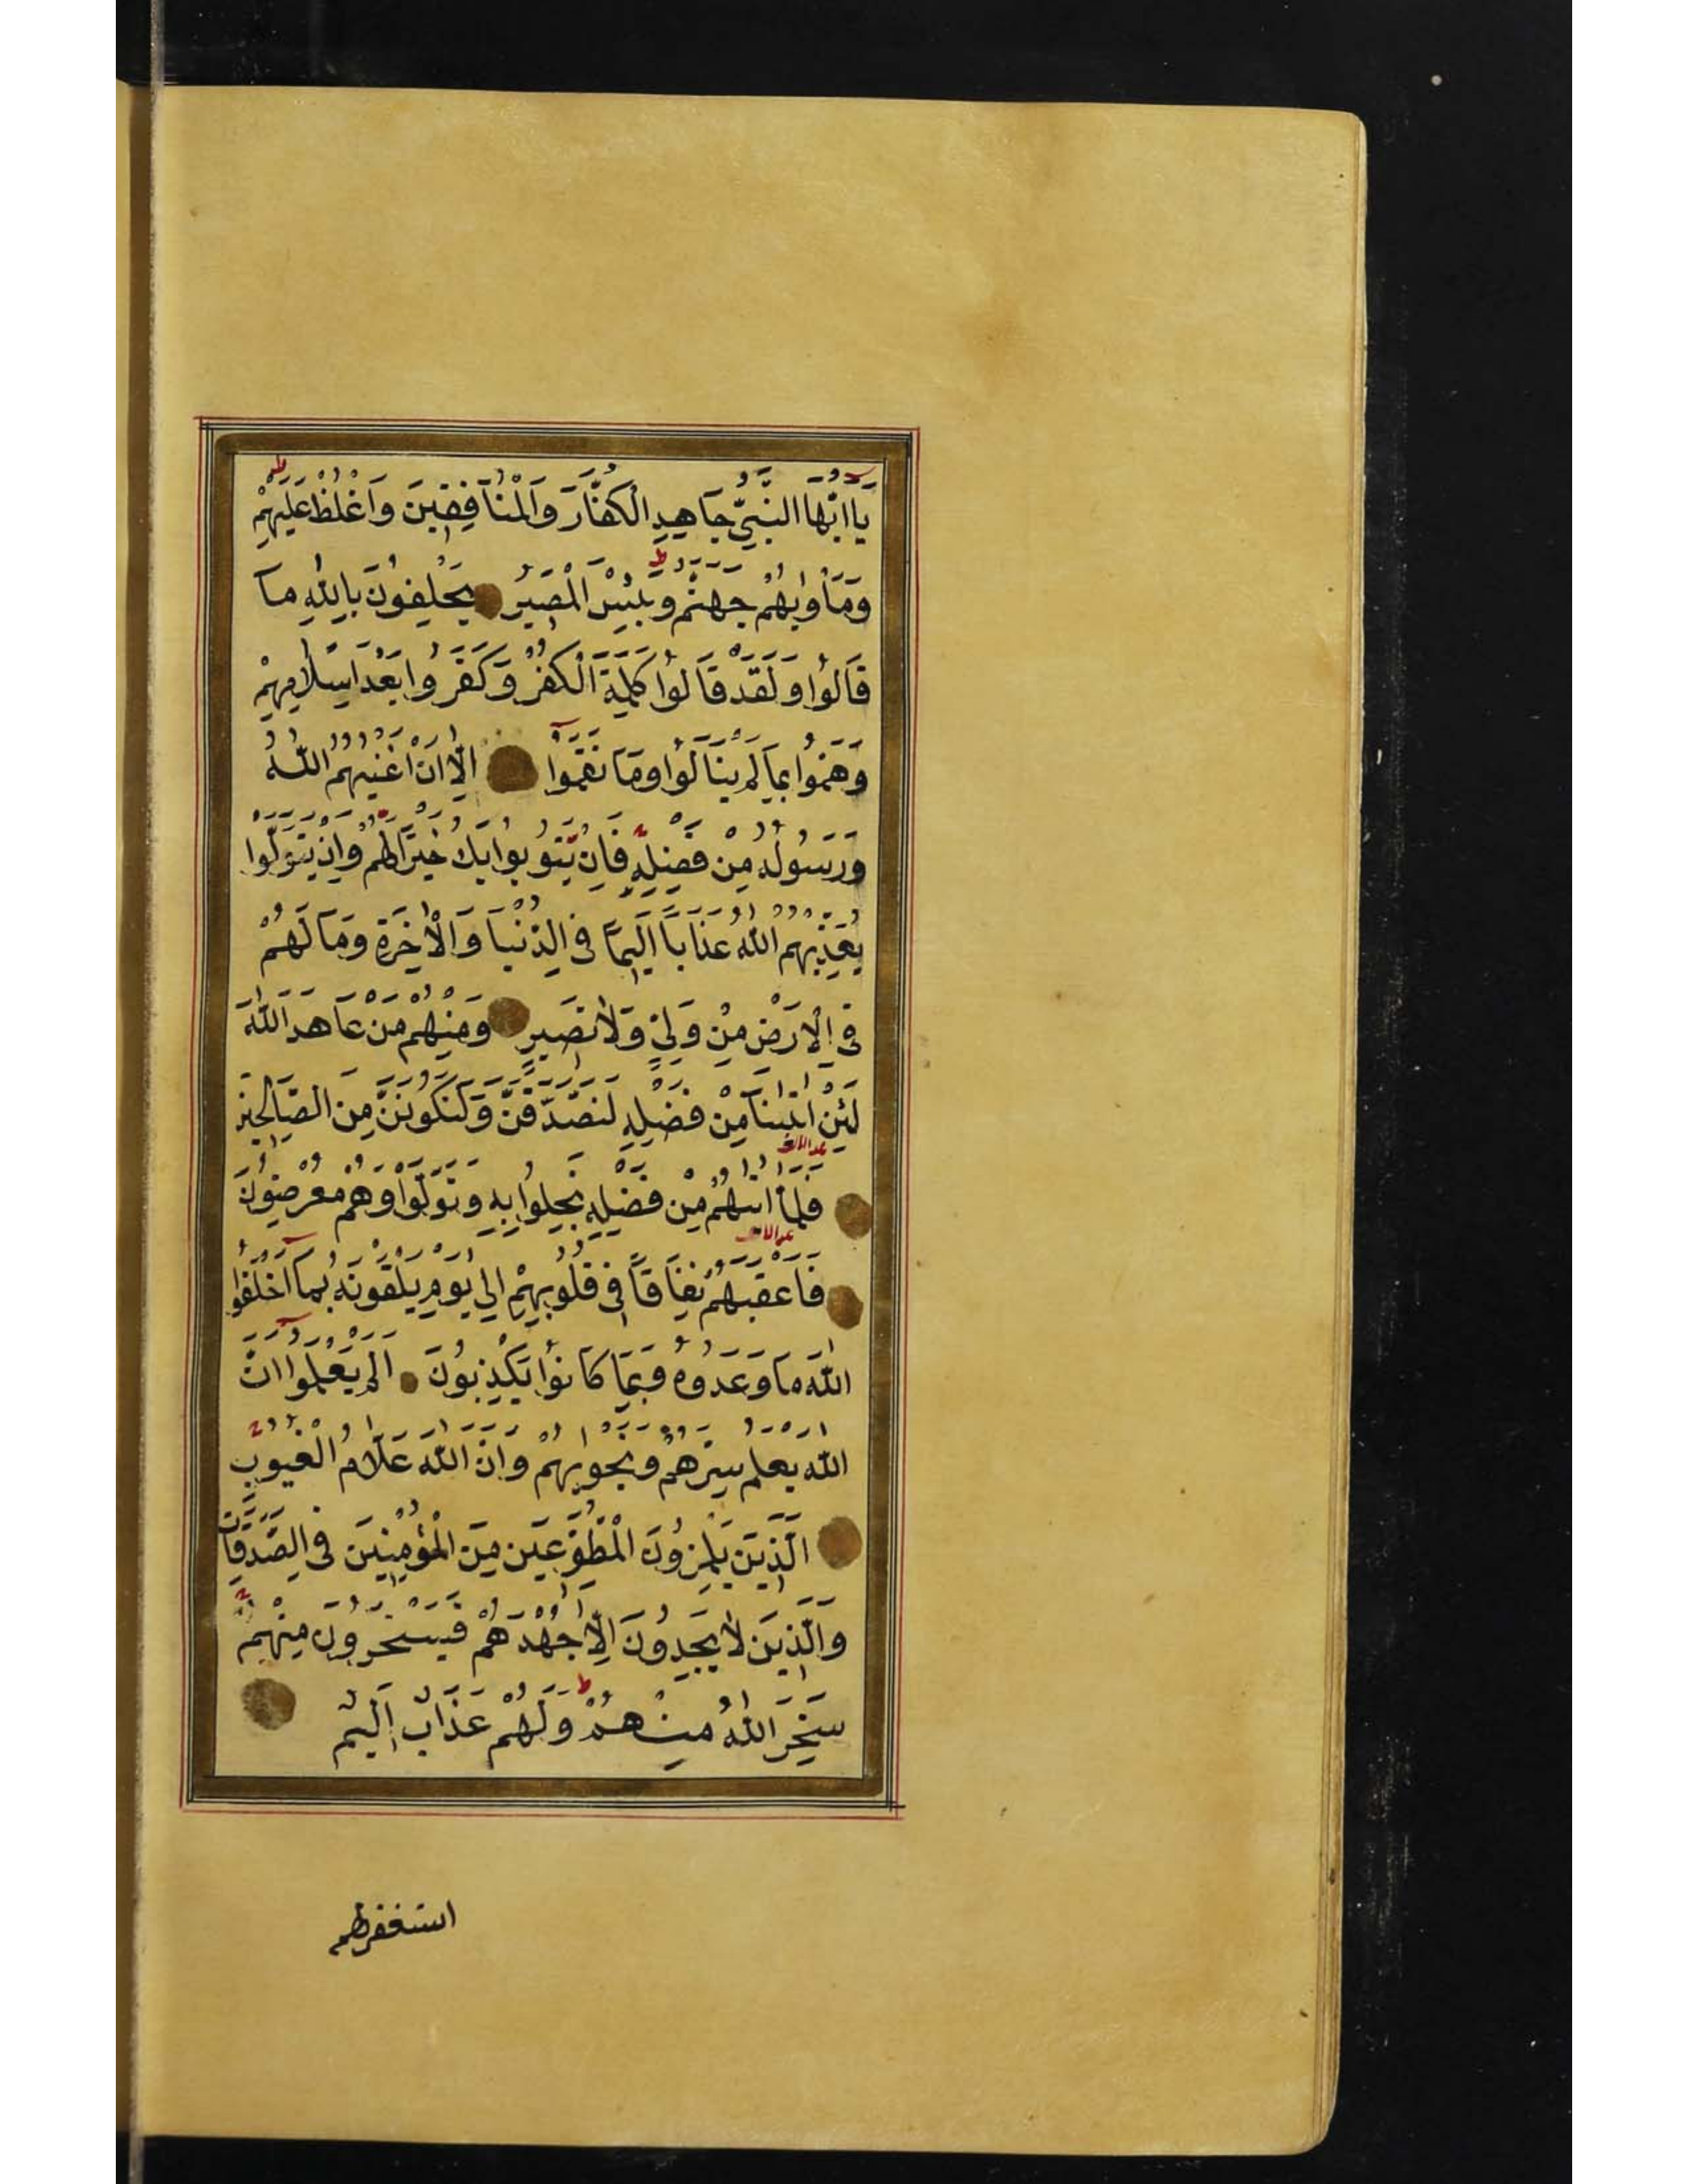 يَا اَيُّهَا النَّبِيُّ جَاهِدِ الْكُفَّارَ وَالْمُنَافِقِينَ وَاغْلُظْ عَلَيْهِمْ ط
وَمَأْوٰيهُمْ جَهَنَّمُ ط وَبِئْسَ الْمَصِيرُ يَحْلِفُونَ بِاللّٰهِ مَا
قَالُوا وَلَقَدْ قَالُوا كَلِمَةَ الْكُفْرِ وَكَفَرُوا بَعْدَ اِسْلَامِهِمْ
وَهَمُّوا بِمَا لَمْ يَنَالُوا وَمَا نَقَمُوا اِلَّا اَنْ اَغْنٰيهُمُ اللّٰهُ
وَرَسُولُهُ مِنْ فَضْلِهِ ج فَاِنْ يَتُوبُوا يَكُ خَيْرًا لَهُمْ ج وَاِنْ يَتَوَلَّوْا
يُعَذِّبْهُمُ اللّٰهُ عَذَابًا اَلِيمًا فِى الدُّنْيَا وَالْاٰخِرَةِ وَمَا لَهُمْ
فِى الْاَرْضِ مِنْ وَلِيٍّ وَلَا نَصِيرٍ وَمِنْهُمْ مَنْ عَاهَدَ اللّٰهَ
لَئِنْ اٰتٰينَا مِنْ فَضْلِهِ لَنَصَّدَّقَنَّ وَلَنَكُونَنَّ مِنَ الصَّالِحِينَ
فَلَمَّا اٰتٰيهُمْ مِنْ فَضْلِهِ بَخِلُوا بِهِ وَتَوَلَّوْا وَهُمْ مُعْرِضُونَ
فَاَعْقَبَهُمْ نِفَاقًا فِى قُلُوبِهِمْ اِلٰى يَوْمِ يَلْقَوْنَهُ بِمَا اَخْلَفُوا
اللّٰهَ مَا وَعَدُوهُ وَبِمَا كَانُوا يَكْذِبُونَ اَلَمْ يَعْلَمُوا اَنَّ
اللّٰهَ يَعْلَمُ سِرَّهُمْ وَنَجْوٰيهُمْ وَاَنَّ اللّٰهَ عَلَّامُ الْغُيُوبِ ج
اَلَّذِينَ يَلْمِزُونَ الْمُطَّوِّعِينَ مِنَ الْمُؤْمِنِينَ فِى الصَّدَقَاتِ
وَالَّذِينَ لَا يَجِدُونَ اِلَّا جُهْدَهُمْ فَيَسْخَرُونَ مِنْهُمْ ج
سَخِرَ اللّٰهُ مِنْهُمْ ط وَلَهُمْ عَذَابٌ اَلِيمٌ
استغفرلهم